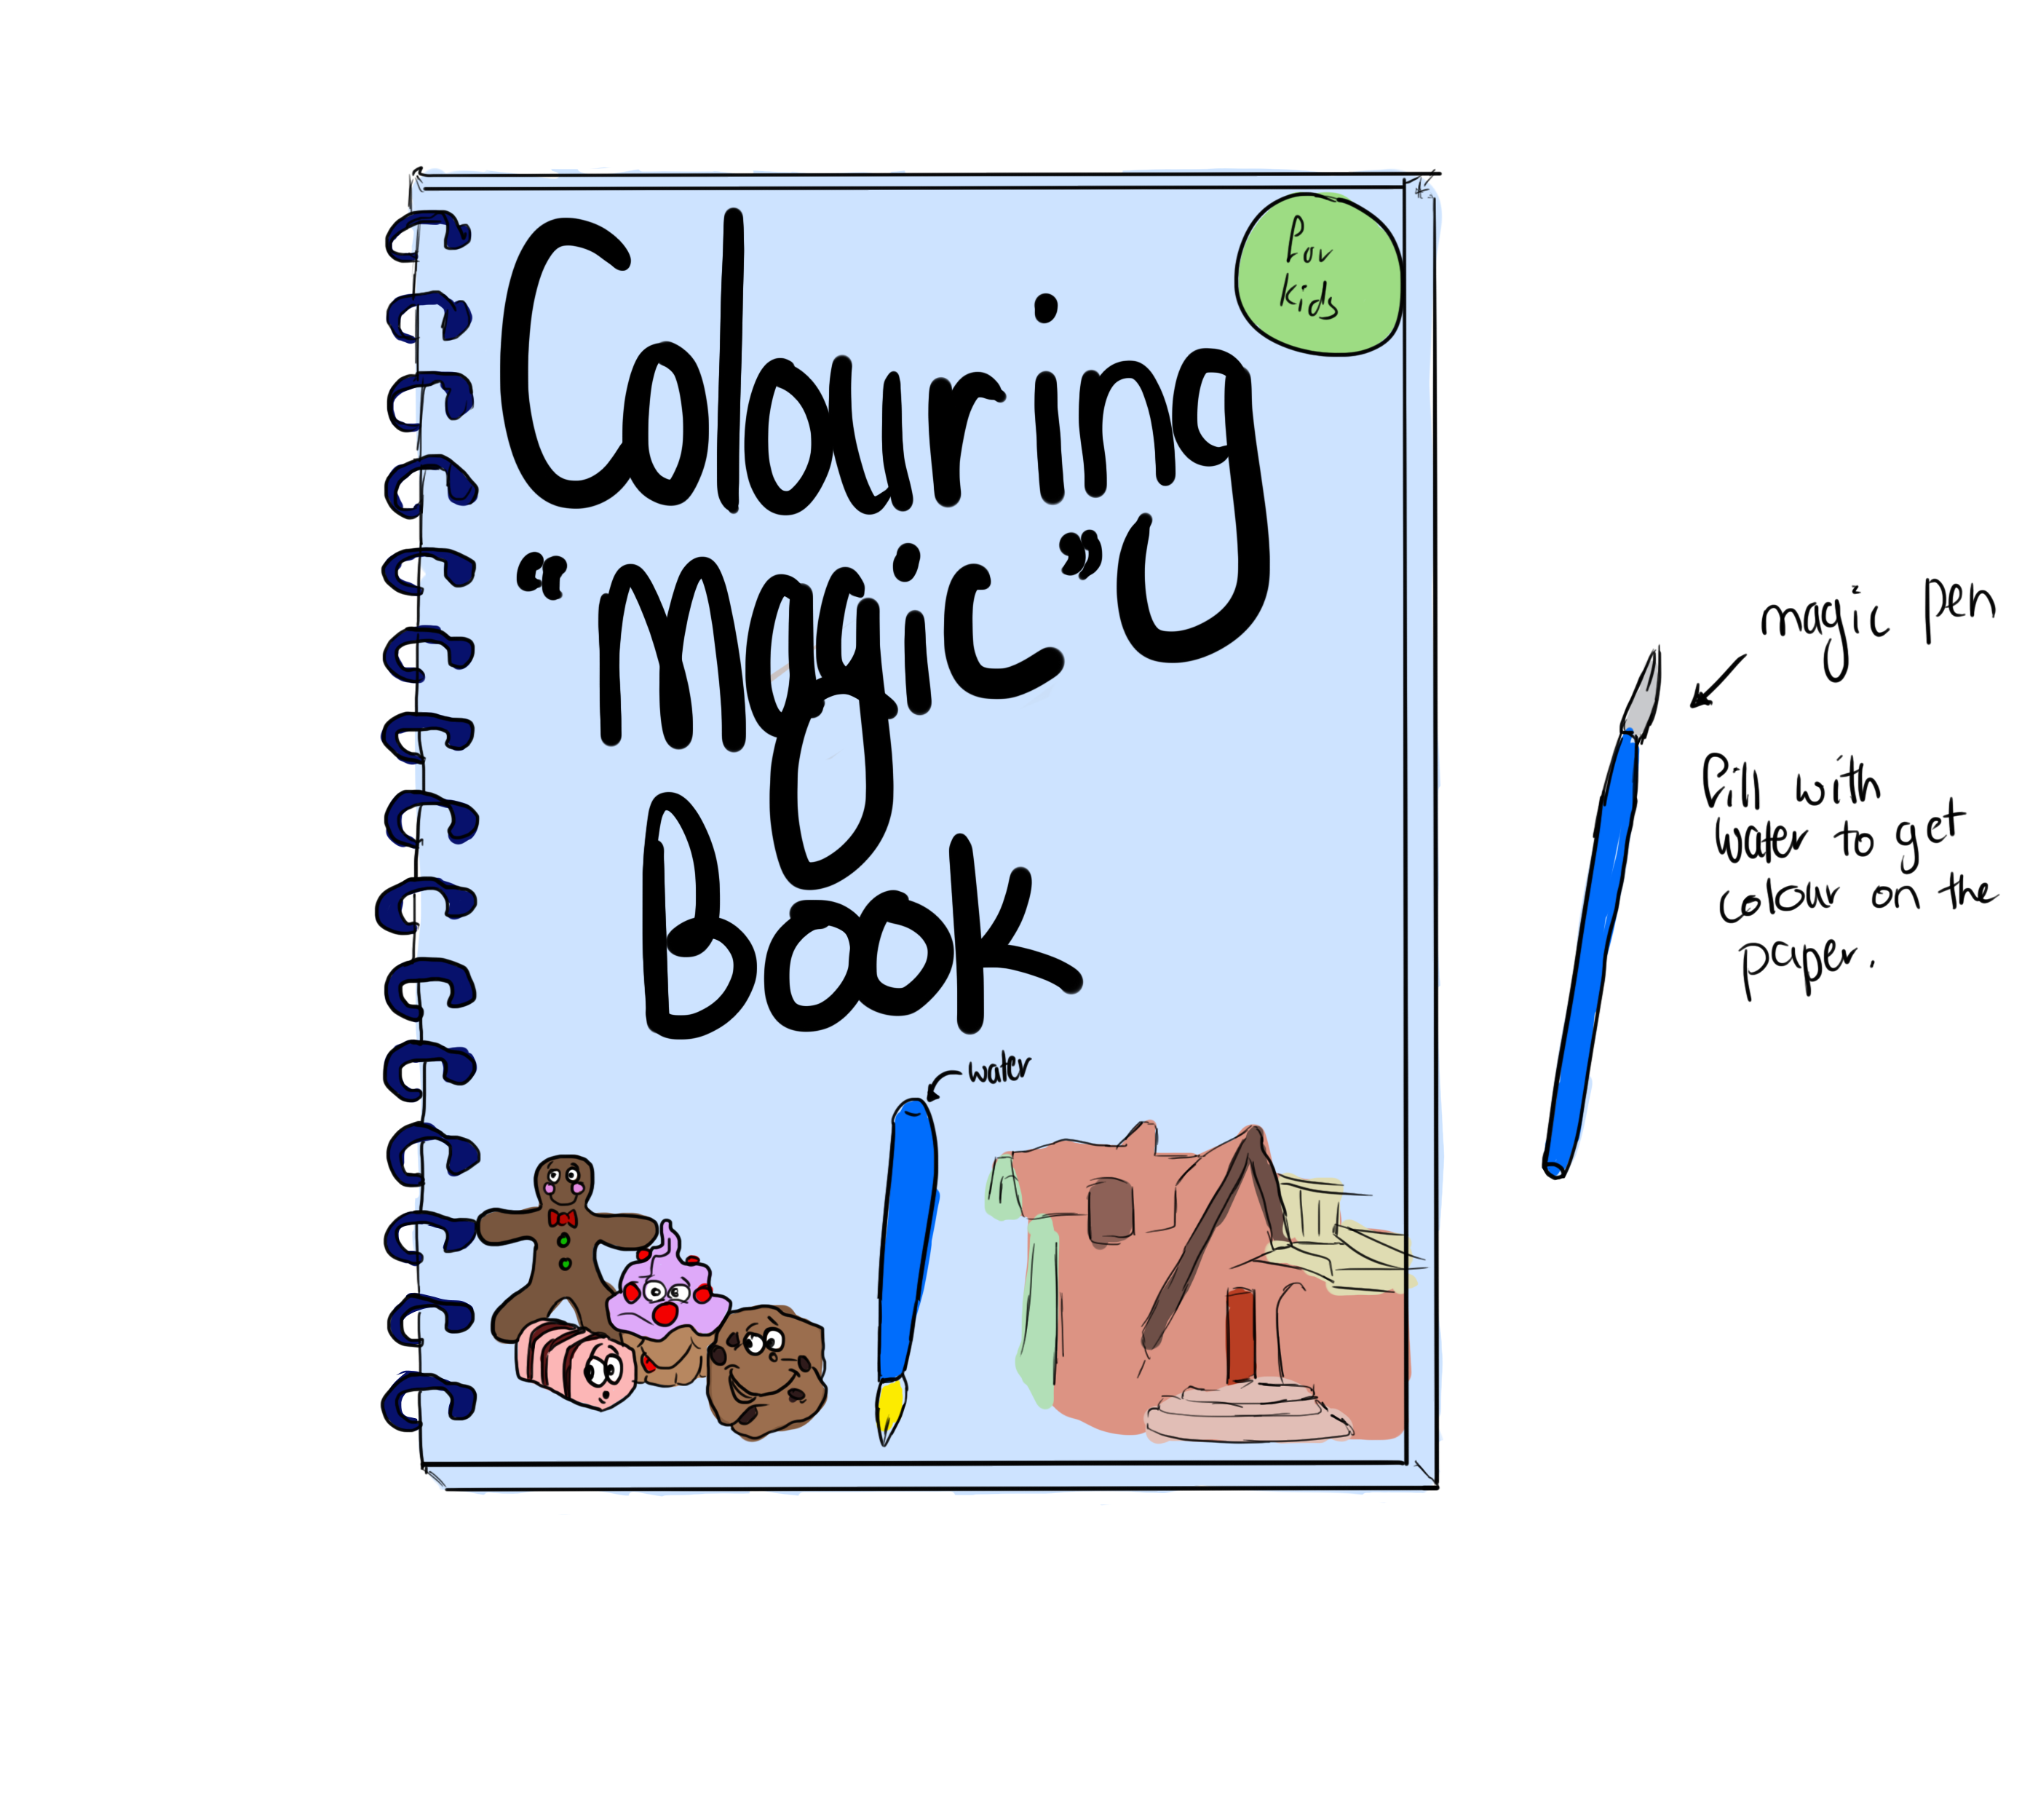 For
kids
Colouring
"Magic"
Book
water
magic pen
Fill with
water to get
colour on the
paper.